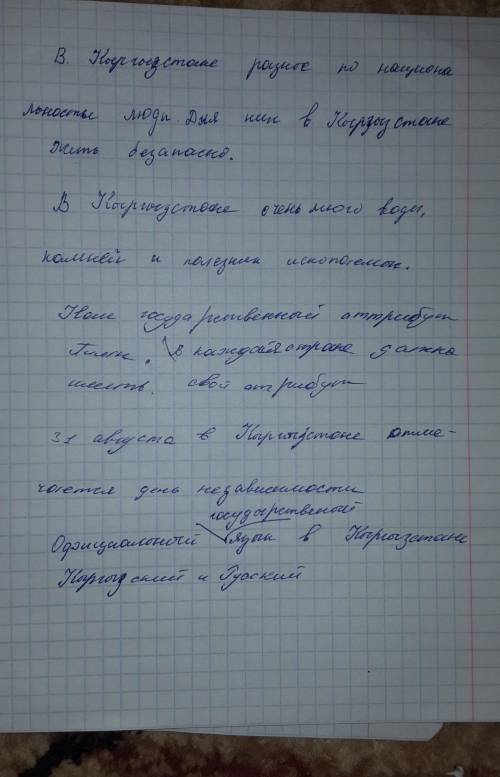 В. Кыргызстане разное по национа
льностье люди. Для них в Кыргызстане
жить безапасно.
В Кыргызстане очень много воды,
камней и полезних ископаемых.
Наш государственный аттрибут
Гимн. В каждой стране должно
иметь. свой атрибут
31 августа в Кыргызстане отме-
чается день независимости
государственый
Официальный язык в Кыргызстане
Кыргызский и Русский